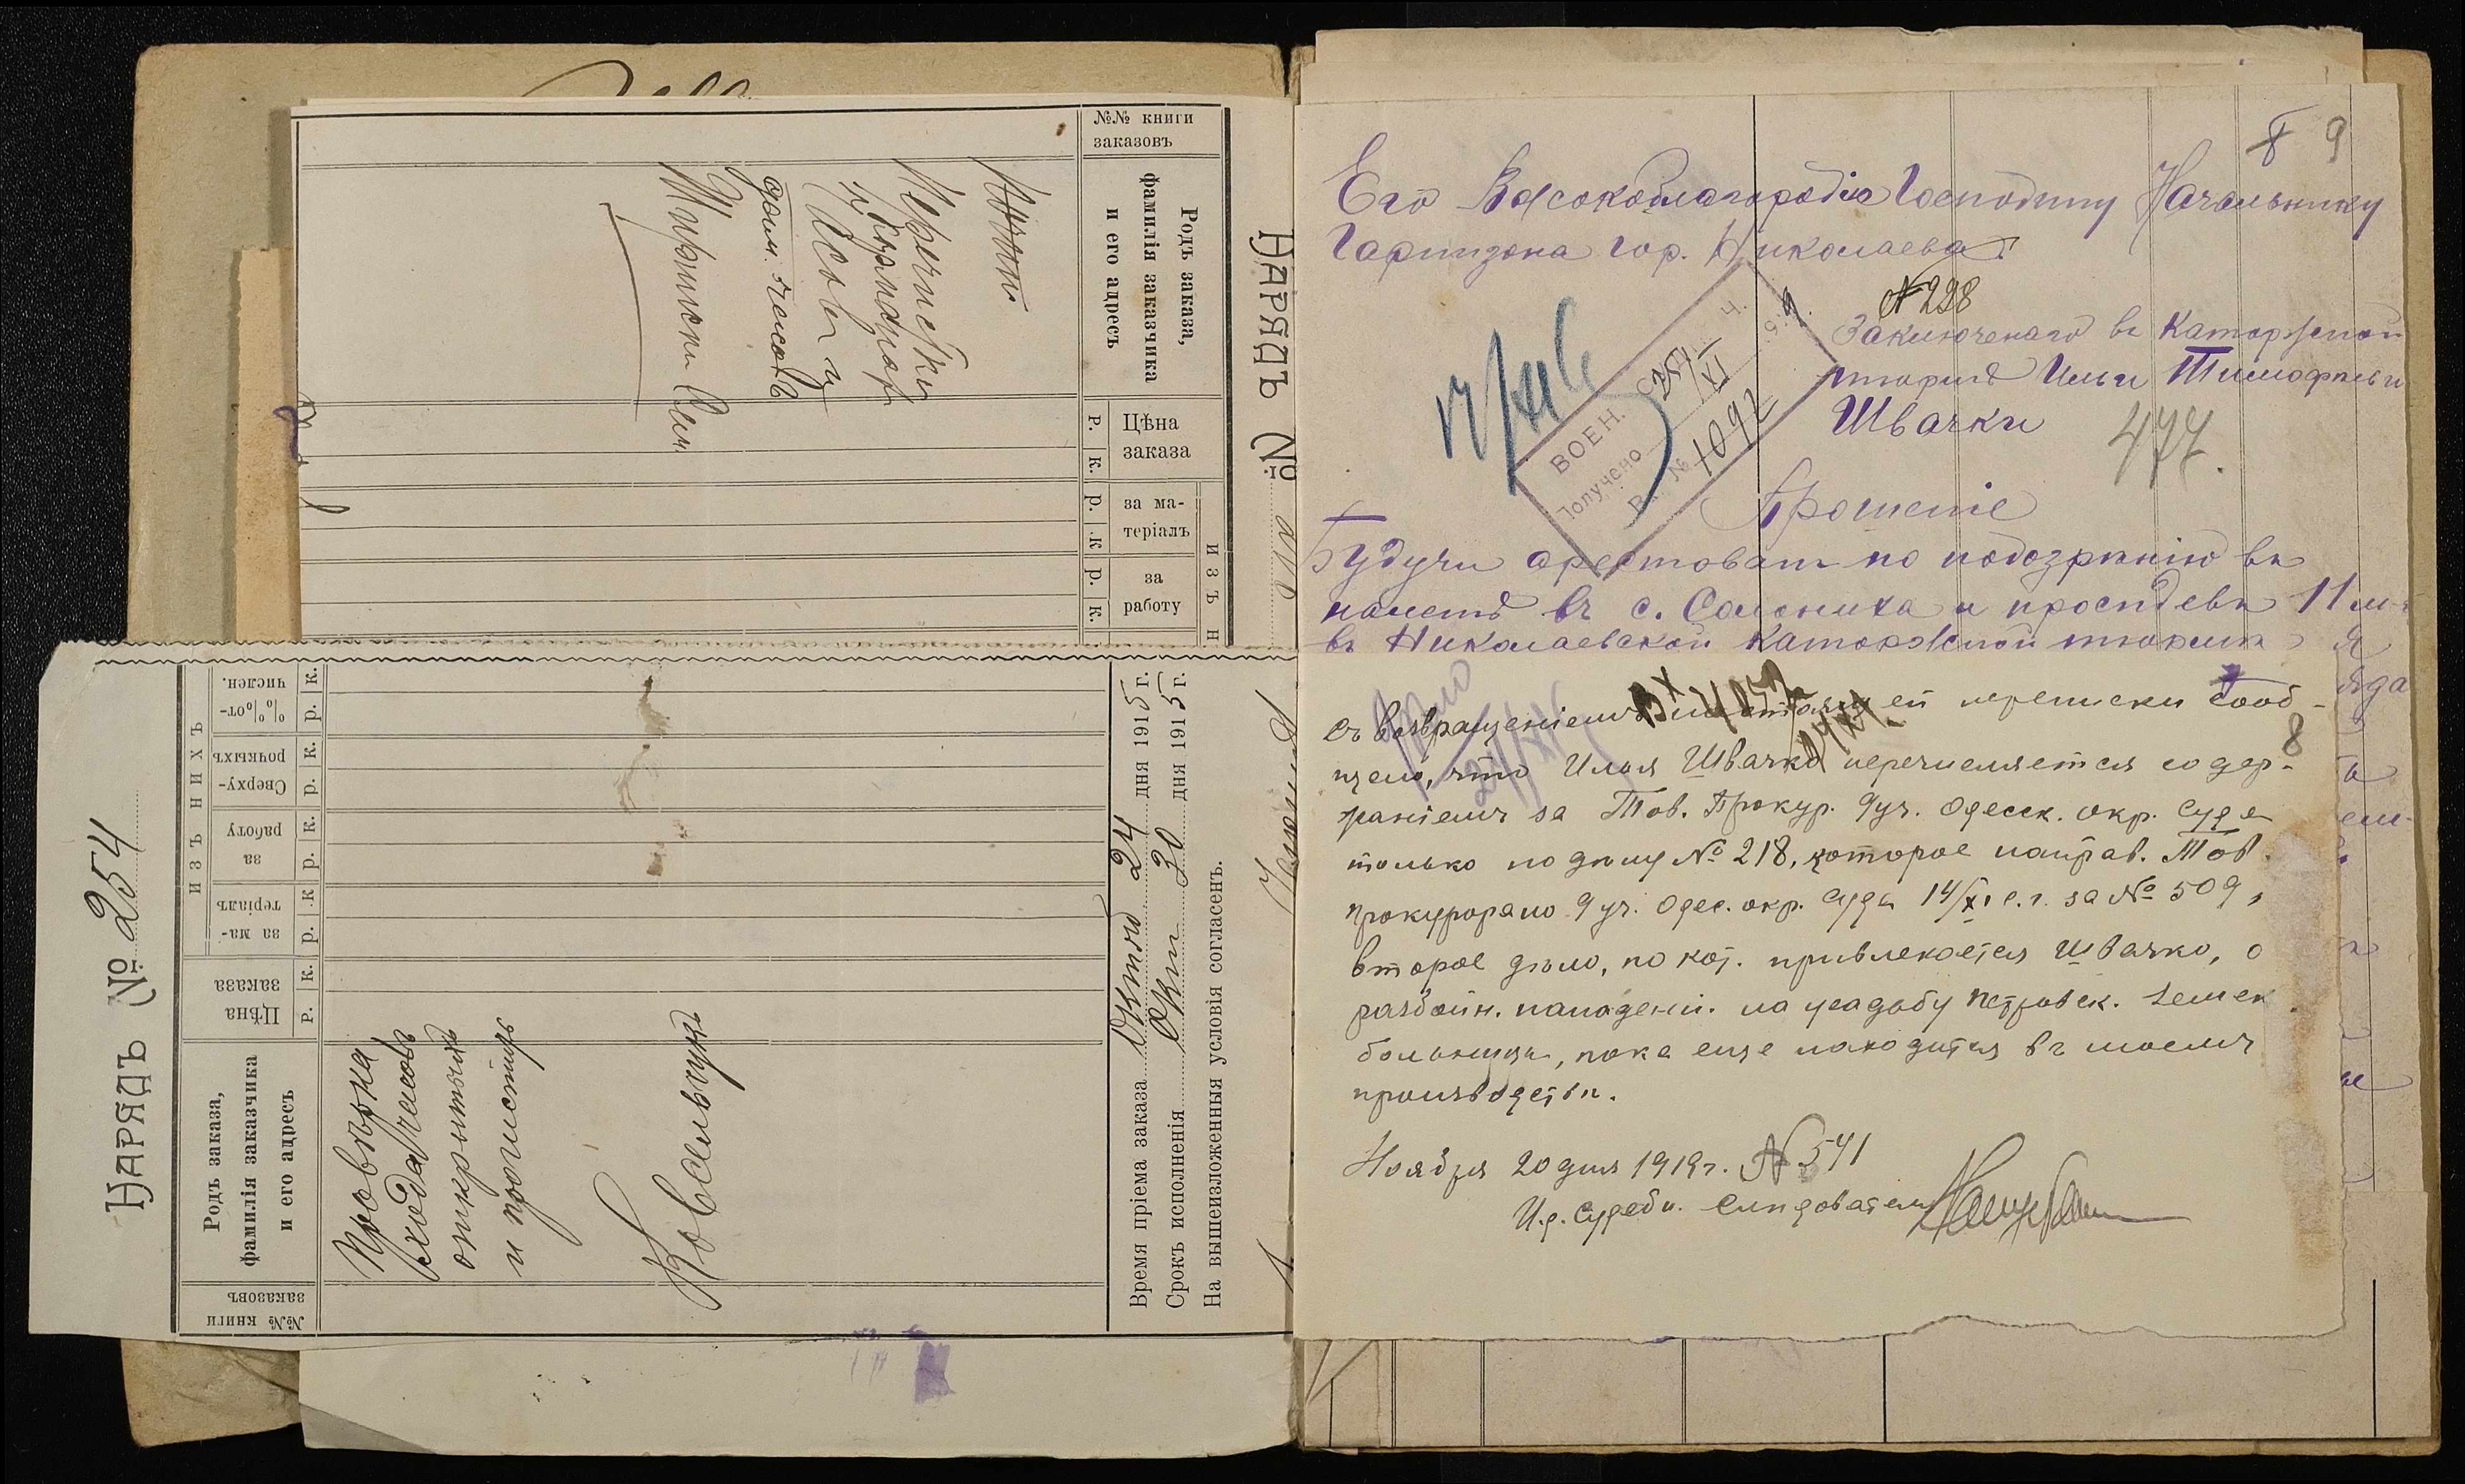 НАРЯДЪ №
№№ книги
заказовъ
Родъ заказа,
фамилія заказчика
и его адресъ
Цѣна
заказа
р. к.
за ма-
теріалъ
р. к.
за
работу
р. к.
ИЗЪ Н
НАРЯДЪ № 254
№№ книги
заказовъ
Родъ заказа,
фамилія заказчика
и его адресъ
Цѣна
заказа
р. к.
ИЗЪ НИХЪ
за ма-
теріалъ
р. к.
за
работу
р. к.
Сверху-
рочныхъ
р. к.
%%от-
числен.
р. к.
Провѣрка
хода часовъ
открытыхъ
и прочистить
Ковсельчукъ
Время пріема заказа Октяб 24 дня 1915 г.
Срокъ исполненія Окт 30 дня 1915 г.
На вышеизложенныя условія согласенъ.
8 9
Его Высокоблагородію Господину Начальнику
Гарнизона гор. Николаева
№ 228
Заключенаго въ Каторжной
тюрмѣ Ильи Тимофѣеви
Швачки
477.
ВОЕН. С. Ч.
Получено 25/XI 9
Вх. № 1092
Прошеніе
Будучи арестован по подозрѣнію въ
налетѣ въ с. Солониха и просидевъ 11 м
въ Николаевской Каторжной тюрмѣ
Вх
8
Съ возвращеніемъ настоящей переписки сооб-
щаю, что Илья Швачко перечисляется содер-
жаніемъ за Тов. Прокур. 9 уч. Одесск. окр. Суда
только по дѣлу № 218, которое направ. Тов.
прокурорамъ 9 уч. Одес. окр. Суда 14/XI с.г. за № 509,
второе дѣло, по кот. привлекается Швачко, о
разбойн. нападеніи. на усадьбу Петровск. Земск
больницы, пока еще находится въ моемъ
производствѣ.
Ноября 20 дня 1919 г. № 541
И.д. Судебн. Слѣдователя